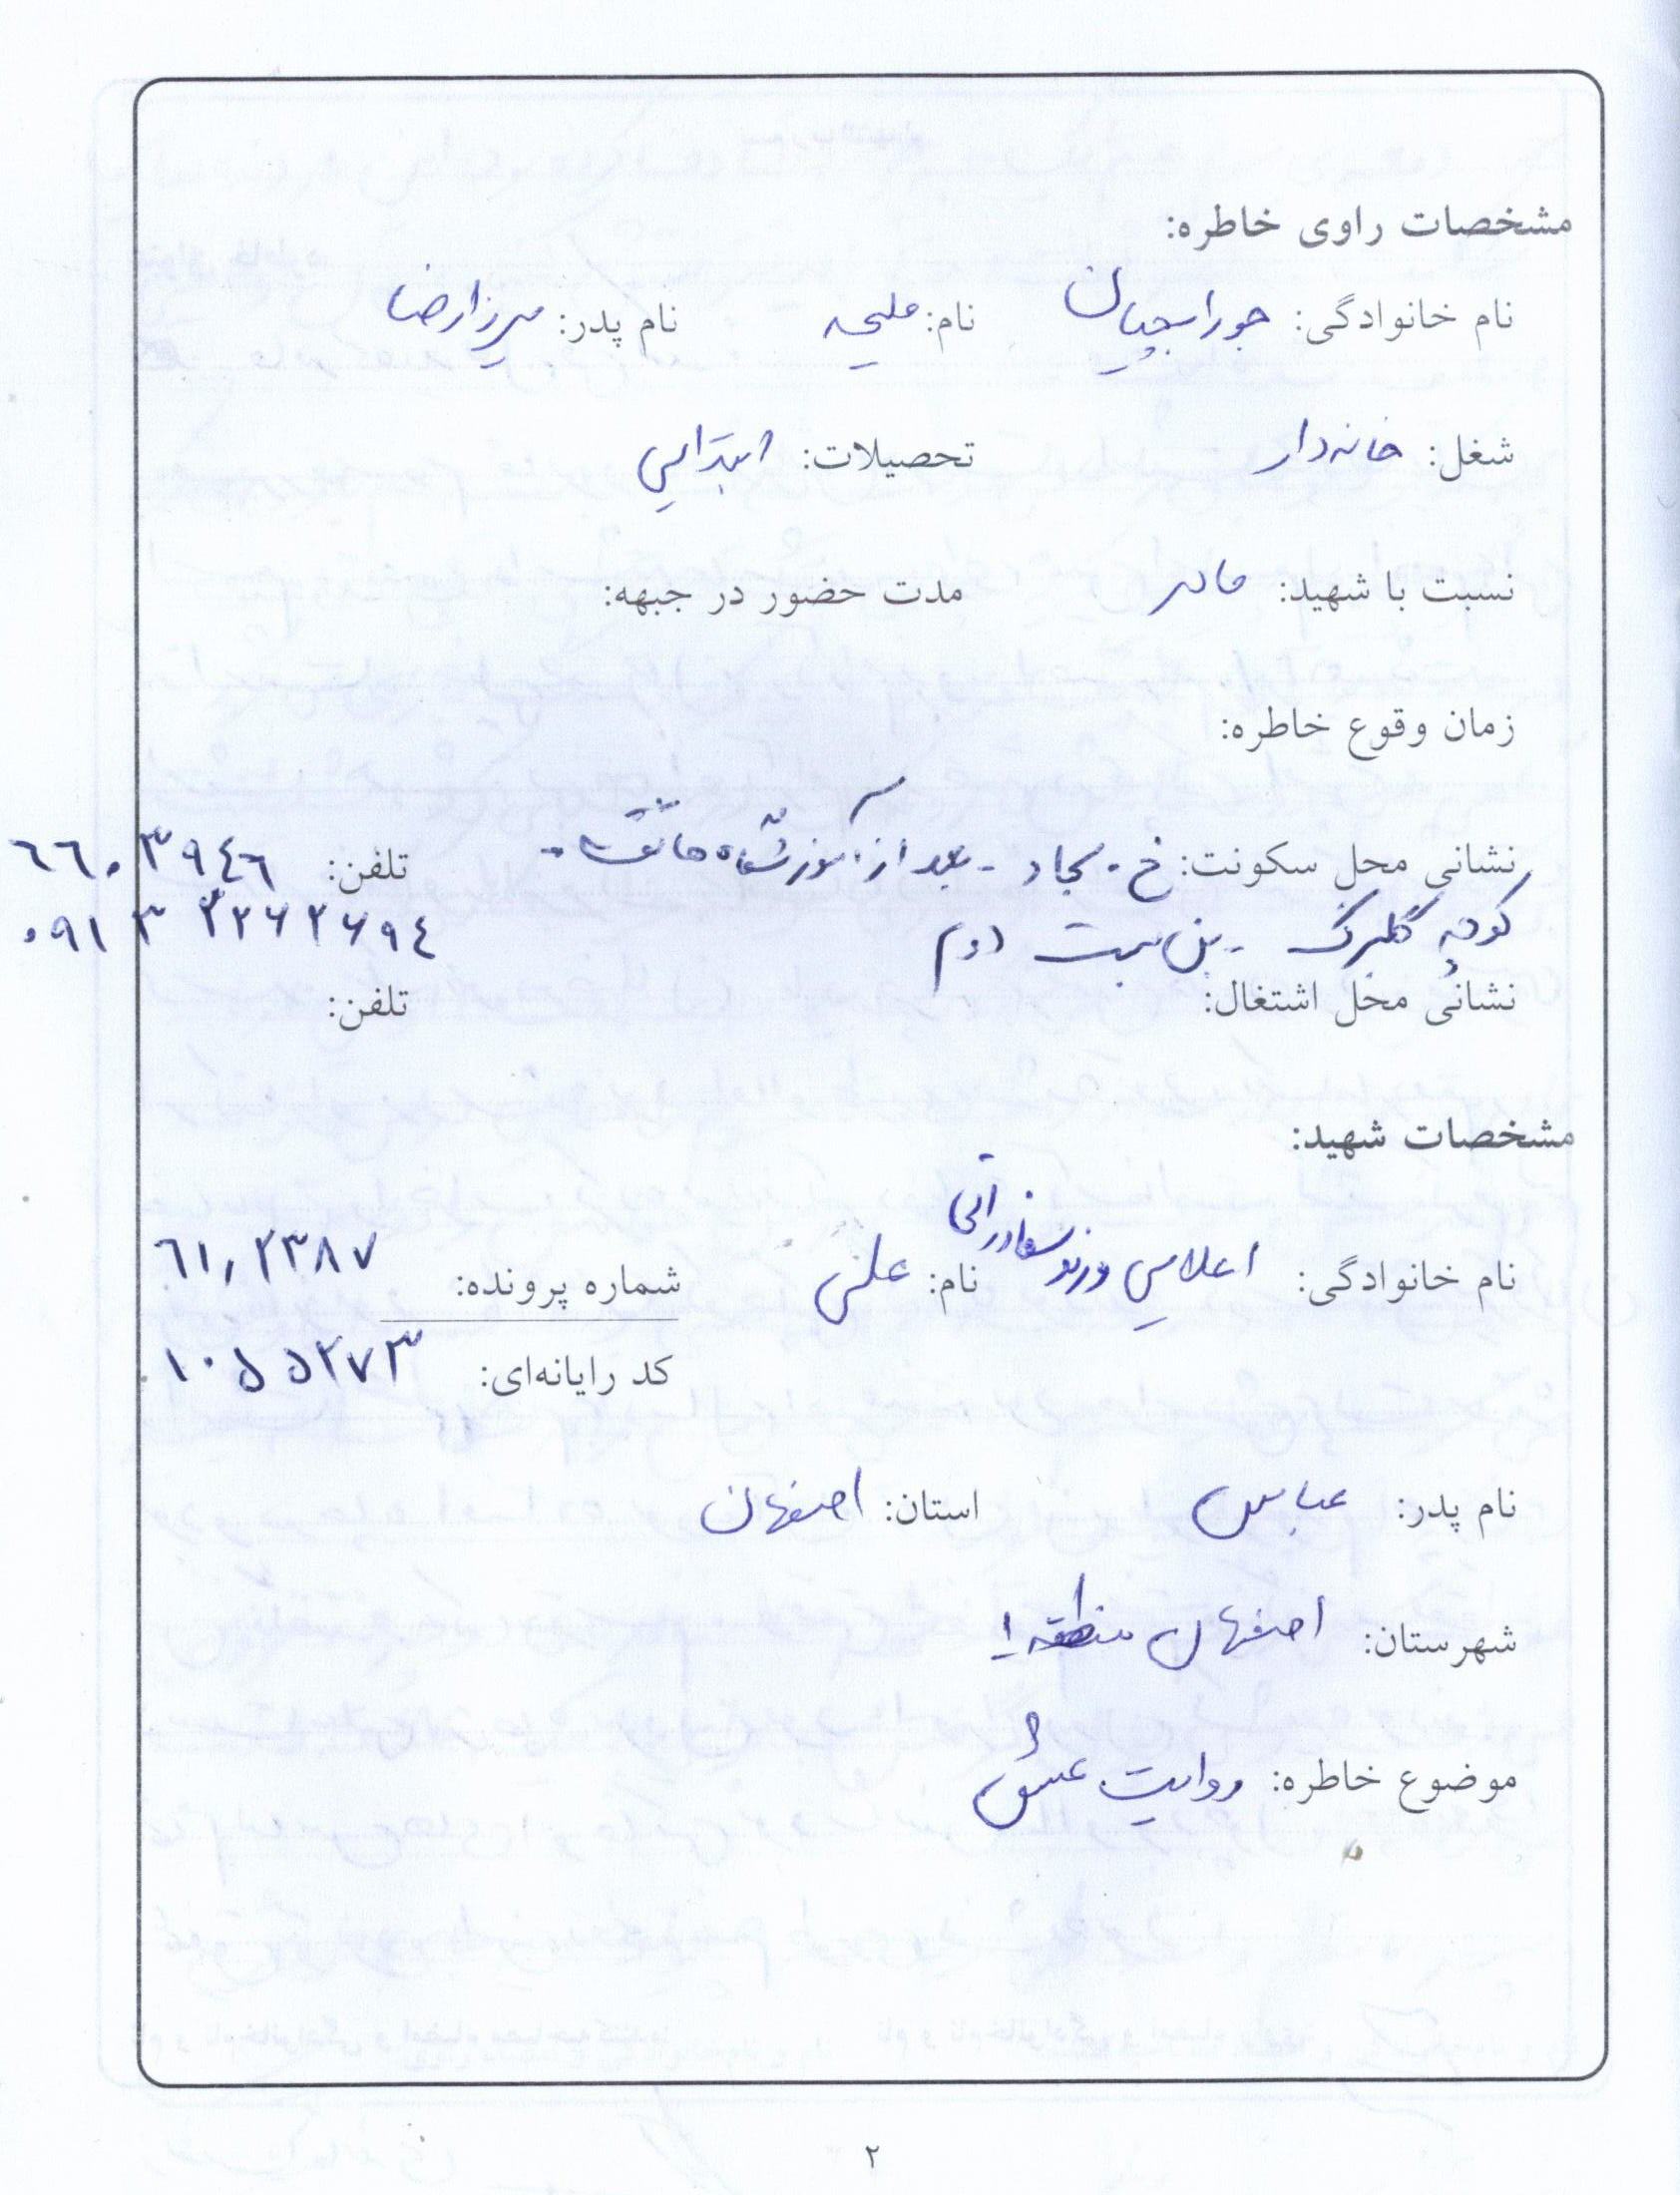 مشخصات راوی خاطره:
نام خانوادگی: جورابچیان نام: ملیحه نام پدر: میرزارضا
شغل: خانه‌دار تحصیلات: ابتدایی
نسبت با شهید: مادر مدت حضور در جبهه:
زمان وقوع خاطره:
نشانی محل سکونت: خ. سجاد - بعد از آموزشگاه تلفن: ٦٦٠٣٩٤٦
کوچه گلبرگ - بن بست دوم ٠٩١٣ ٣٢٦٢٦٩٤
نشانی محل اشتغال: تلفن:
مشخصات شهید:
نام خانوادگی: اعلامی ورنوسفادرانی نام: علی شماره پرونده: ٦١٠٢٣٨٧
کد رایانه‌ای: ١٠٥٥٢٧٣
نام پدر: عباس استان: اصفهان
شهرستان: اصفهان منطقه ١
موضوع خاطره: روایت عشق
٢